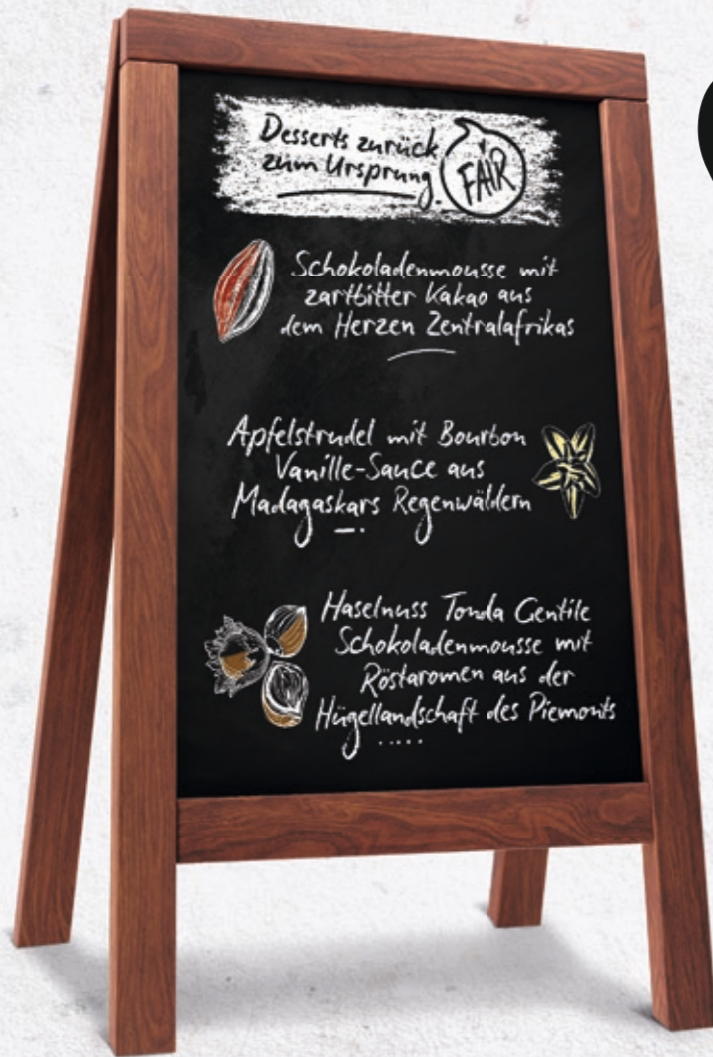 Desserts zurück
zum Ursprung.
FAIR
Schokoladenmousse mit
zartbitter Kakao aus
dem Herzen Zentralafrikas
Apfelstrudel mit Bourbon
Vanille-Sauce aus
Madagaskars Regenwäldern
Haselnuss Tonda Gentile
Schokoladenmousse mit
Röstaromen aus der
Hügellandschaft des Piemonts
.....